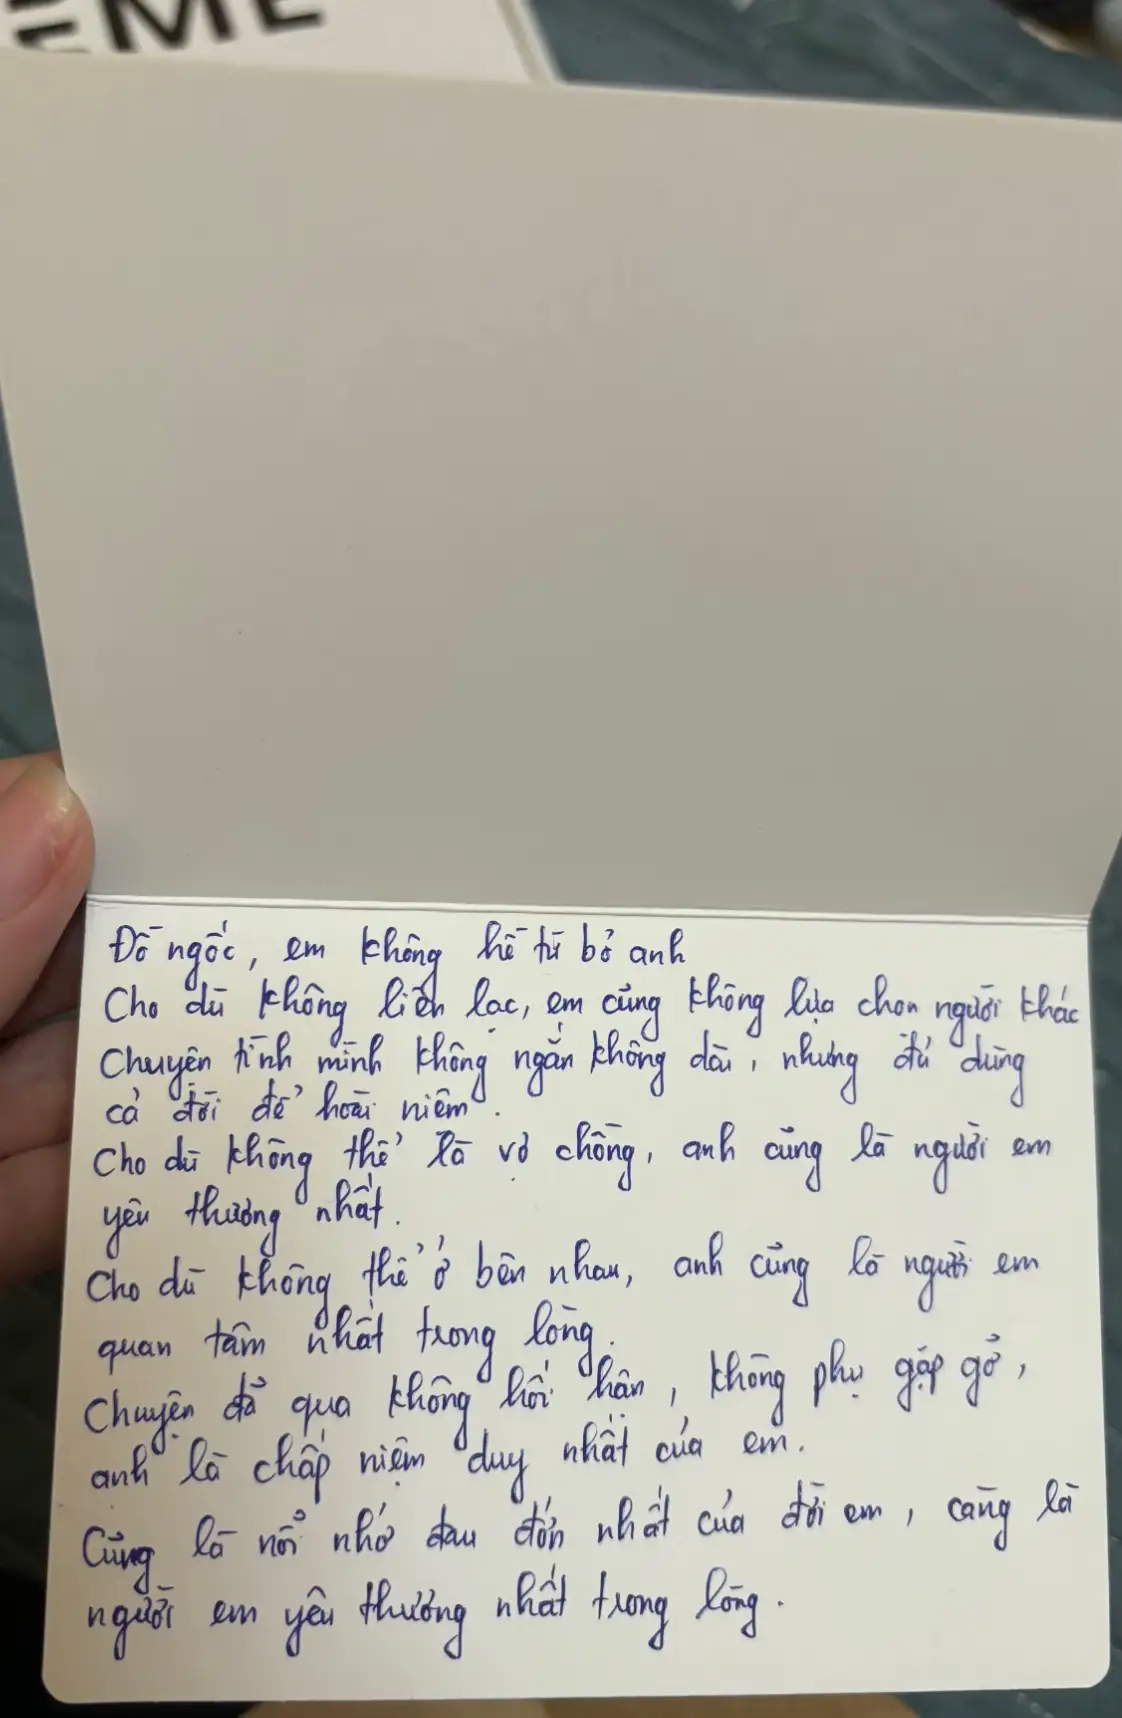 EME
Đồ ngốc, em không hề từ bỏ anh
Cho dù không liên lạc, em cũng không lựa chọn người khác
Chuyện tình mình không ngắn không dài, nhưng đủ dùng
cả đời để hoài niệm.
Cho dù không thể là vợ chồng, anh cũng là người em
yêu thương nhất.
Cho dù không thể ở bên nhau, anh cũng là người em
quan tâm nhất trong lòng.
Chuyện đã qua không hối hận, không phụ gặp gỡ,
anh là chấp niệm duy nhất của em.
Cũng là nỗi nhớ đau đớn nhất của đời em, càng là
người em yêu thương nhất trong lòng.